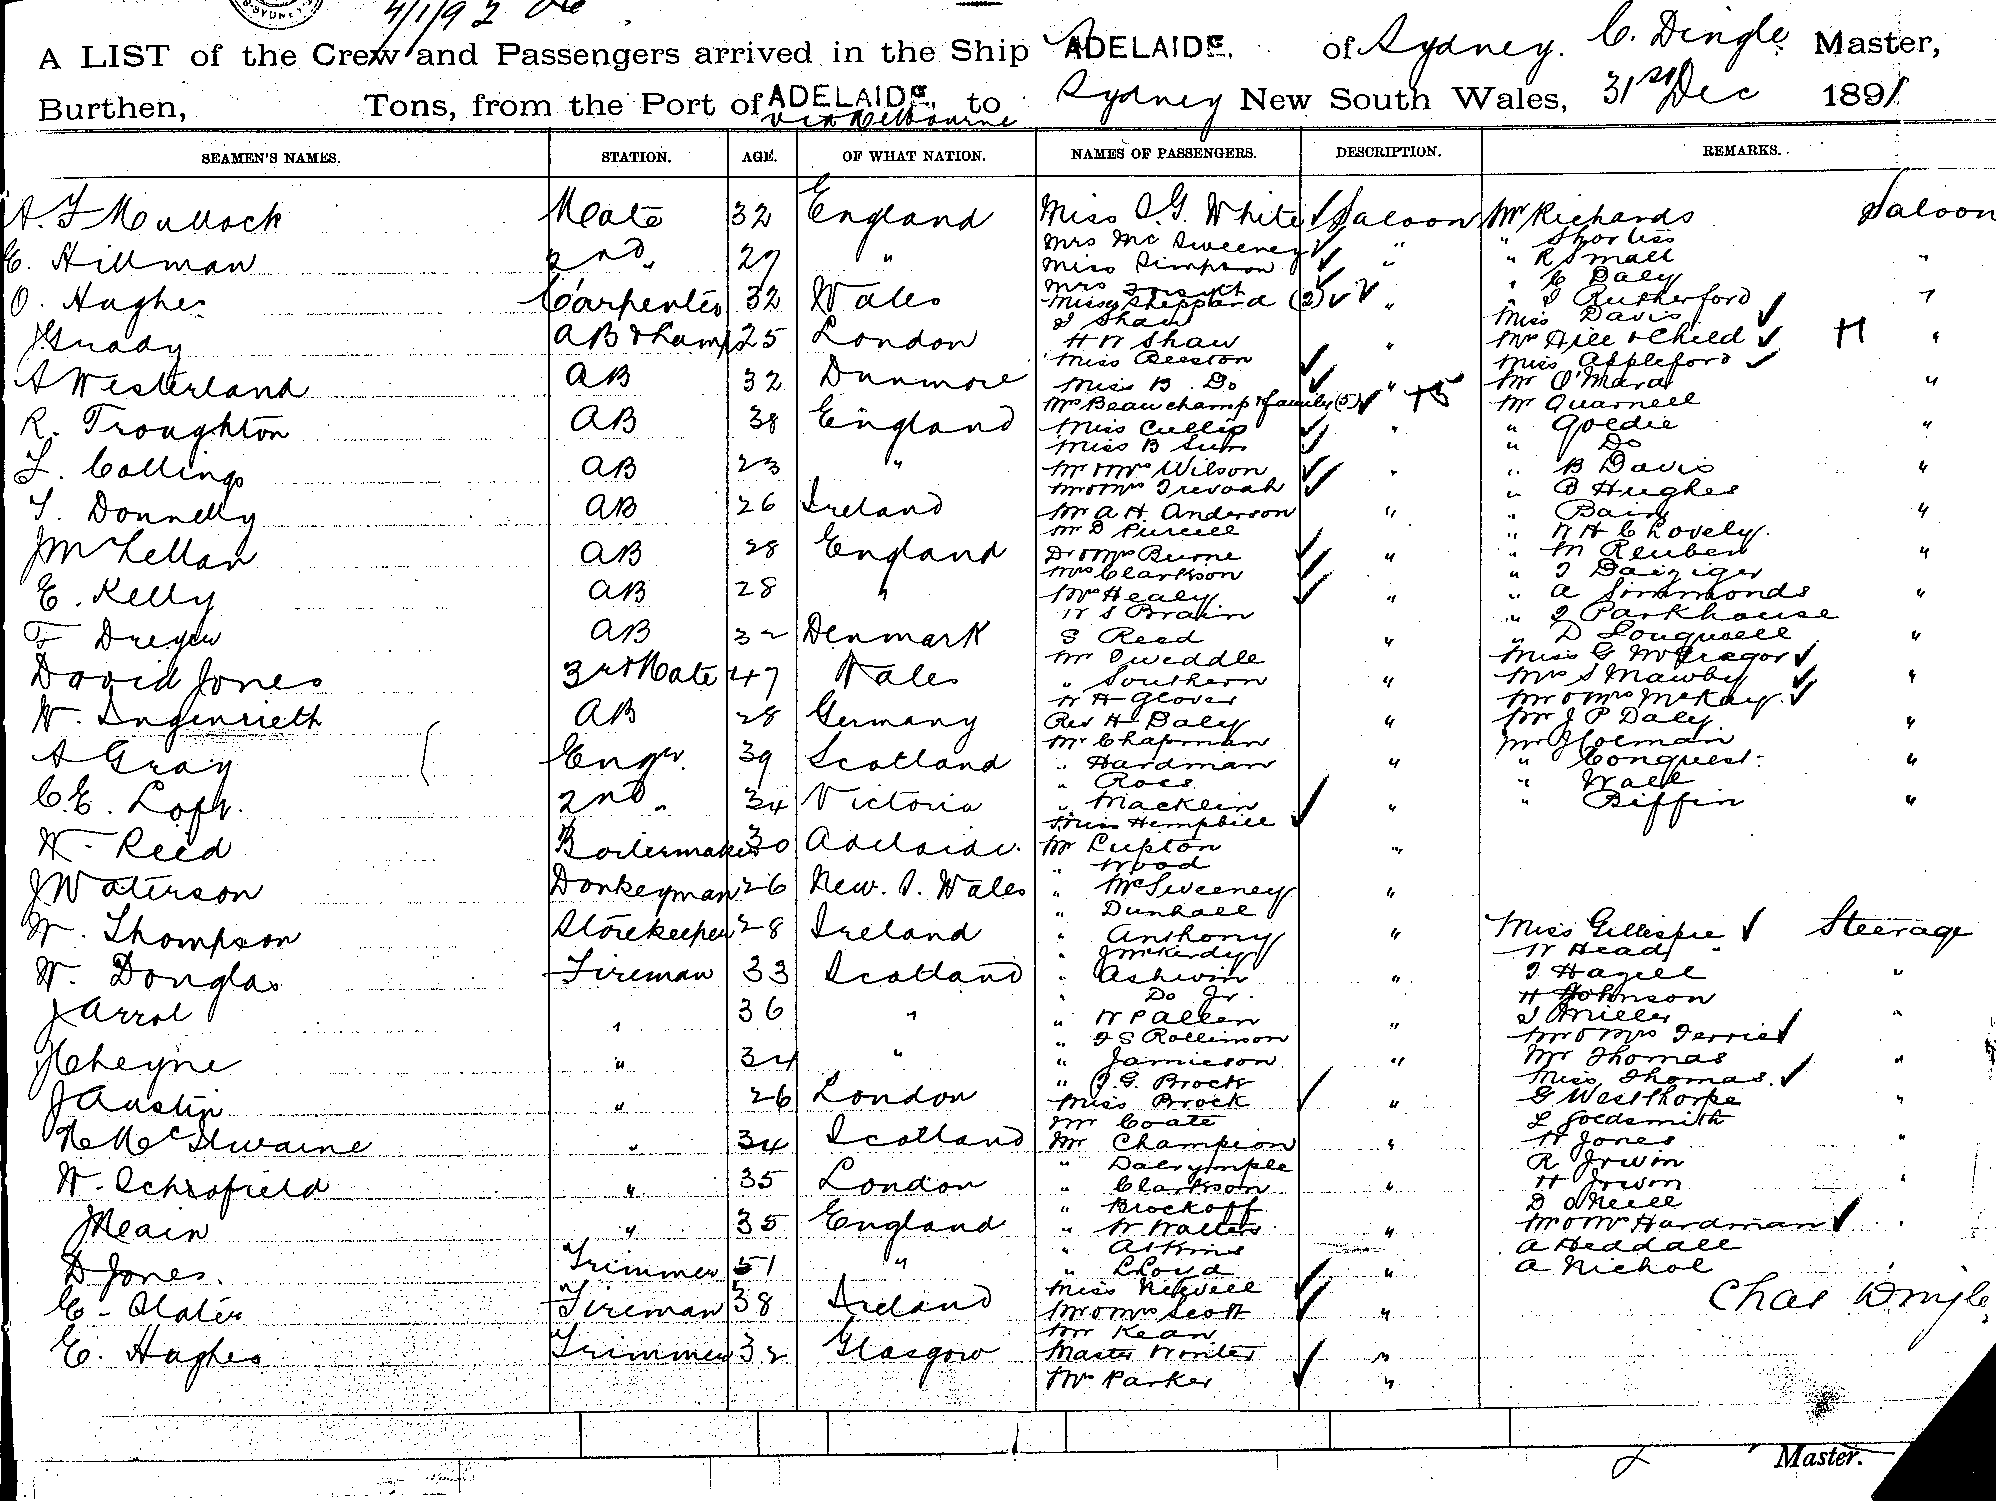 4/1/92
A LIST of the Crew and Passengers arrived in the Ship ADELAIDE. of Sydney. C. Dingle Master,
Burthen, Tons, from the Port of ADELAIDE, via Melbourne to Sydney New South Wales, 31st Dec 1891
SEAMEN'S NAMES. STATION. AGE. OF WHAT NATION. NAMES OF PASSENGERS. DESCRIPTION. REMARKS.
A. F Mullock Mate 32 England
E. Hillman 2nd " 27 "
O. Hughes Carpenter 32 Wales
J Grady AB & Lamp 25 London
A Westerland AB 32 Dunmore
R. Troughton AB 38 England
F. Collings AB 23 "
T. Donnelly AB 26 Ireland
J McLellan AB 28 England
E. Kelly AB 28 "
F Dreyer AB 32 Denmark
David Jones 3rd Mate 47 Wales
W. Ingenrieth AB 28 Germany
A Gray Engr. 39 Scotland
C. E. Loft. 2nd " 34 Victoria
W. Reed Boilermaker 30 Adelaide.
J Waterson Donkeyman 26 New. S. Wales
W. Thompson Storekeeper 28 Ireland
W. Douglas Fireman 33 Scotland
J Arrol " 36 "
J Cheyne " 34 "
J Austin " 26 London
N McIlwaine " 34 Scotland
W. Schofield " 35 London
J Meain " 35 England
D Jones. Trimmer 51 "
E. Slater Fireman 38 Ireland
E. Hughes Trimmer 32 Glasgow
Miss I. G. White Saloon
Mrs Mc Sweeney "
Miss Simpson "
Mrs Forsyth
Missy Sheppard (2) "
J Shaw
H W Shaw "
Miss Beeston
Miss B. Do "
Mrs Beauchamp & family (5) " +5
Miss Cullip "
Miss B Sum
Mr & Mrs Wilson "
Mr & Mrs Trevoah
Mr A H. Anderson "
Mr D Purcell
Dr & Mrs Burne "
Mrs Clarkson
Mrs Healy "
W S Brain
S Reed "
Mr Tweddle
" Southern "
W H Glover
Rev H Daly "
Mr Chapman
" Hardman "
" Ross
" Macklin "
Miss Hemphill
Mr Lupton "
" Wood
" McSweeney "
" Dunhall
" Anthony "
" J McKerdy
" Ashwin "
" Do Jr.
" W P Allen "
" F S Rollinson
" Jamieson "
" J. G. Brock
Miss Brock "
Mr Coate
Mr Champion "
" Dalrymple
" Clarkson "
" Brockoff
" W Walters "
" Atkins
" Lloyd "
Miss Newell
Mr & Mrs Scott "
Mr Kean
Master Wonter "
Mrs Parker "
Mr Richards Saloon
" Shortiss
" R Small "
" C Daly
" J Rutherford "
Miss Davis
Mrs Hill & Child "
Miss Appleford
Mr O'Mara "
Mr Quarnell
" Goldie "
" Do
" B Davis "
" B Hughes
" Bain "
" W H C Lovely.
" M Reuben "
" J Danziger
" A Simmonds "
" J Parkhouse
" D Longwell "
Miss G McGregor
Mrs S Mawby "
Mr & Mrs McKay.
Mr J P Daly "
Mr J Coleman
" Conquest. "
" Wall
" Biffin "
Miss Gillespie Steerage
W Head "
J Hazell "
H Johnson
J Miller "
Mr & Mrs Ferrie
Mr Thomas "
Miss Thomas.
G Westthorpe "
L Goldsmith
W Jones "
R Irwin
H Irwin "
D O'Neill
Mr & Mrs Hardman
A Heddall
A Nichol
Chas Dingle
Master.